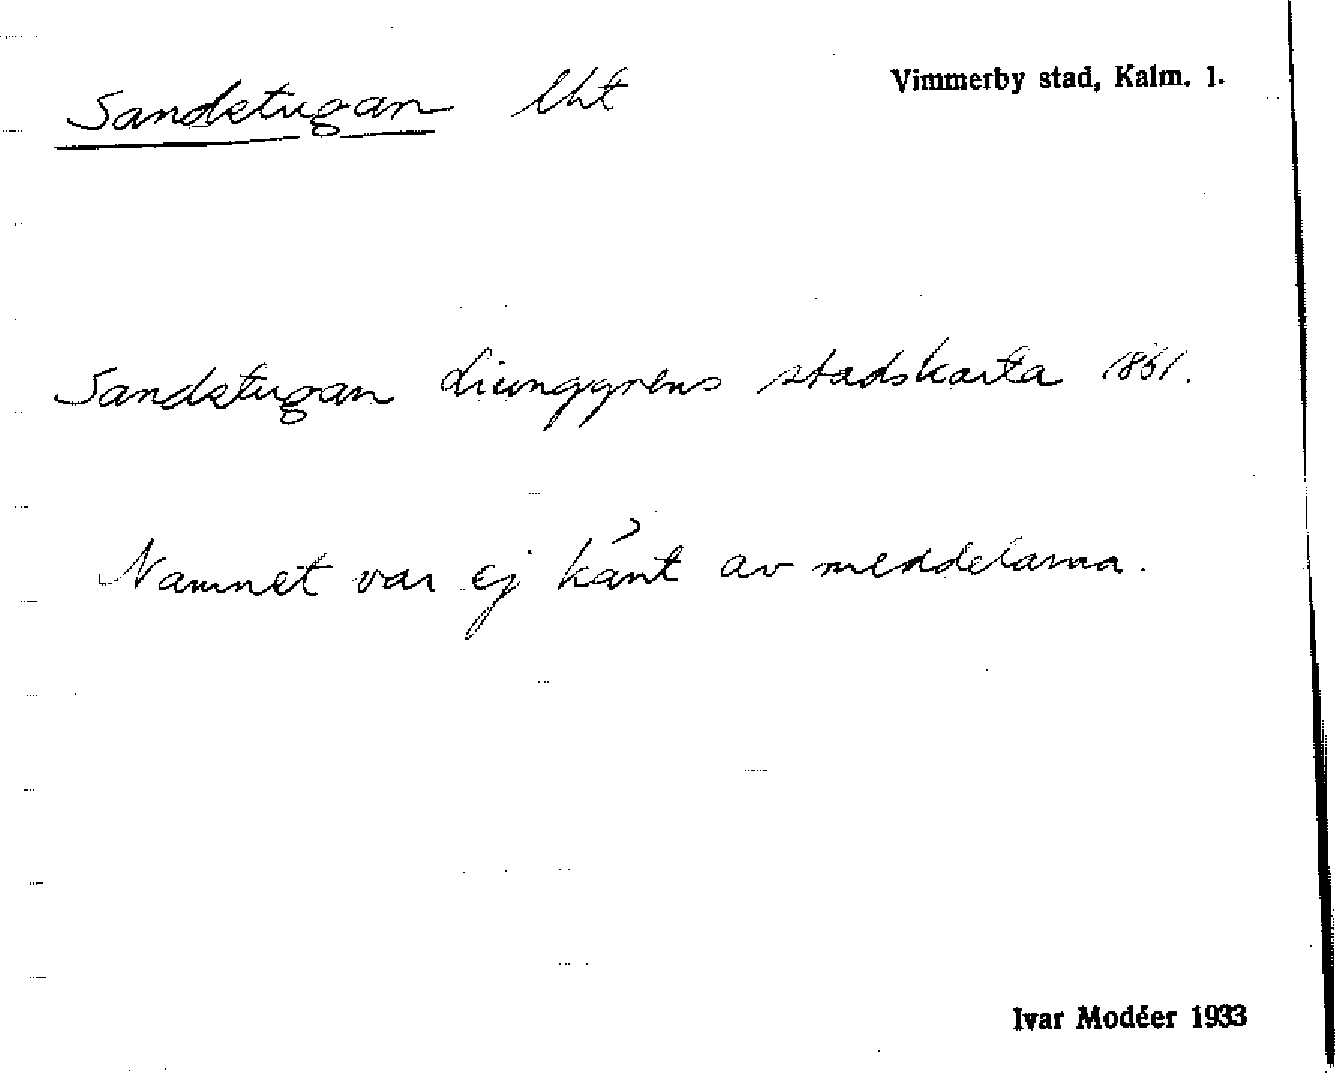 Sandstugan lht Vimmerby stad, Kalm. l.
Sandstugan Ljunggrens stadskarta 1861.
Namnet var ej känt av meddelarna.
Ivar Modéer 1933